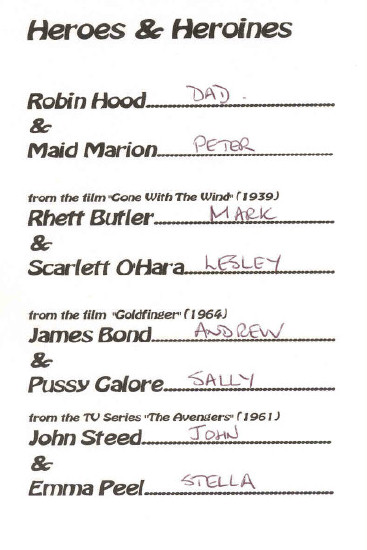 Heroes & Heroines
Robin Hood........DAD.
&
Maid Marion........PETER
from the film "Gone With The Wind" (1939)
Rhett Butler........MARK
&
Scarlett O'Hara........LESLEY
from the film "Goldfinger" (1964)
James Bond........ANDREW
&
Pussy Galore........SALLY
from the TV Series "The Avengers" (1961)
John Steed........JOHN
&
Emma Peel........STELLA